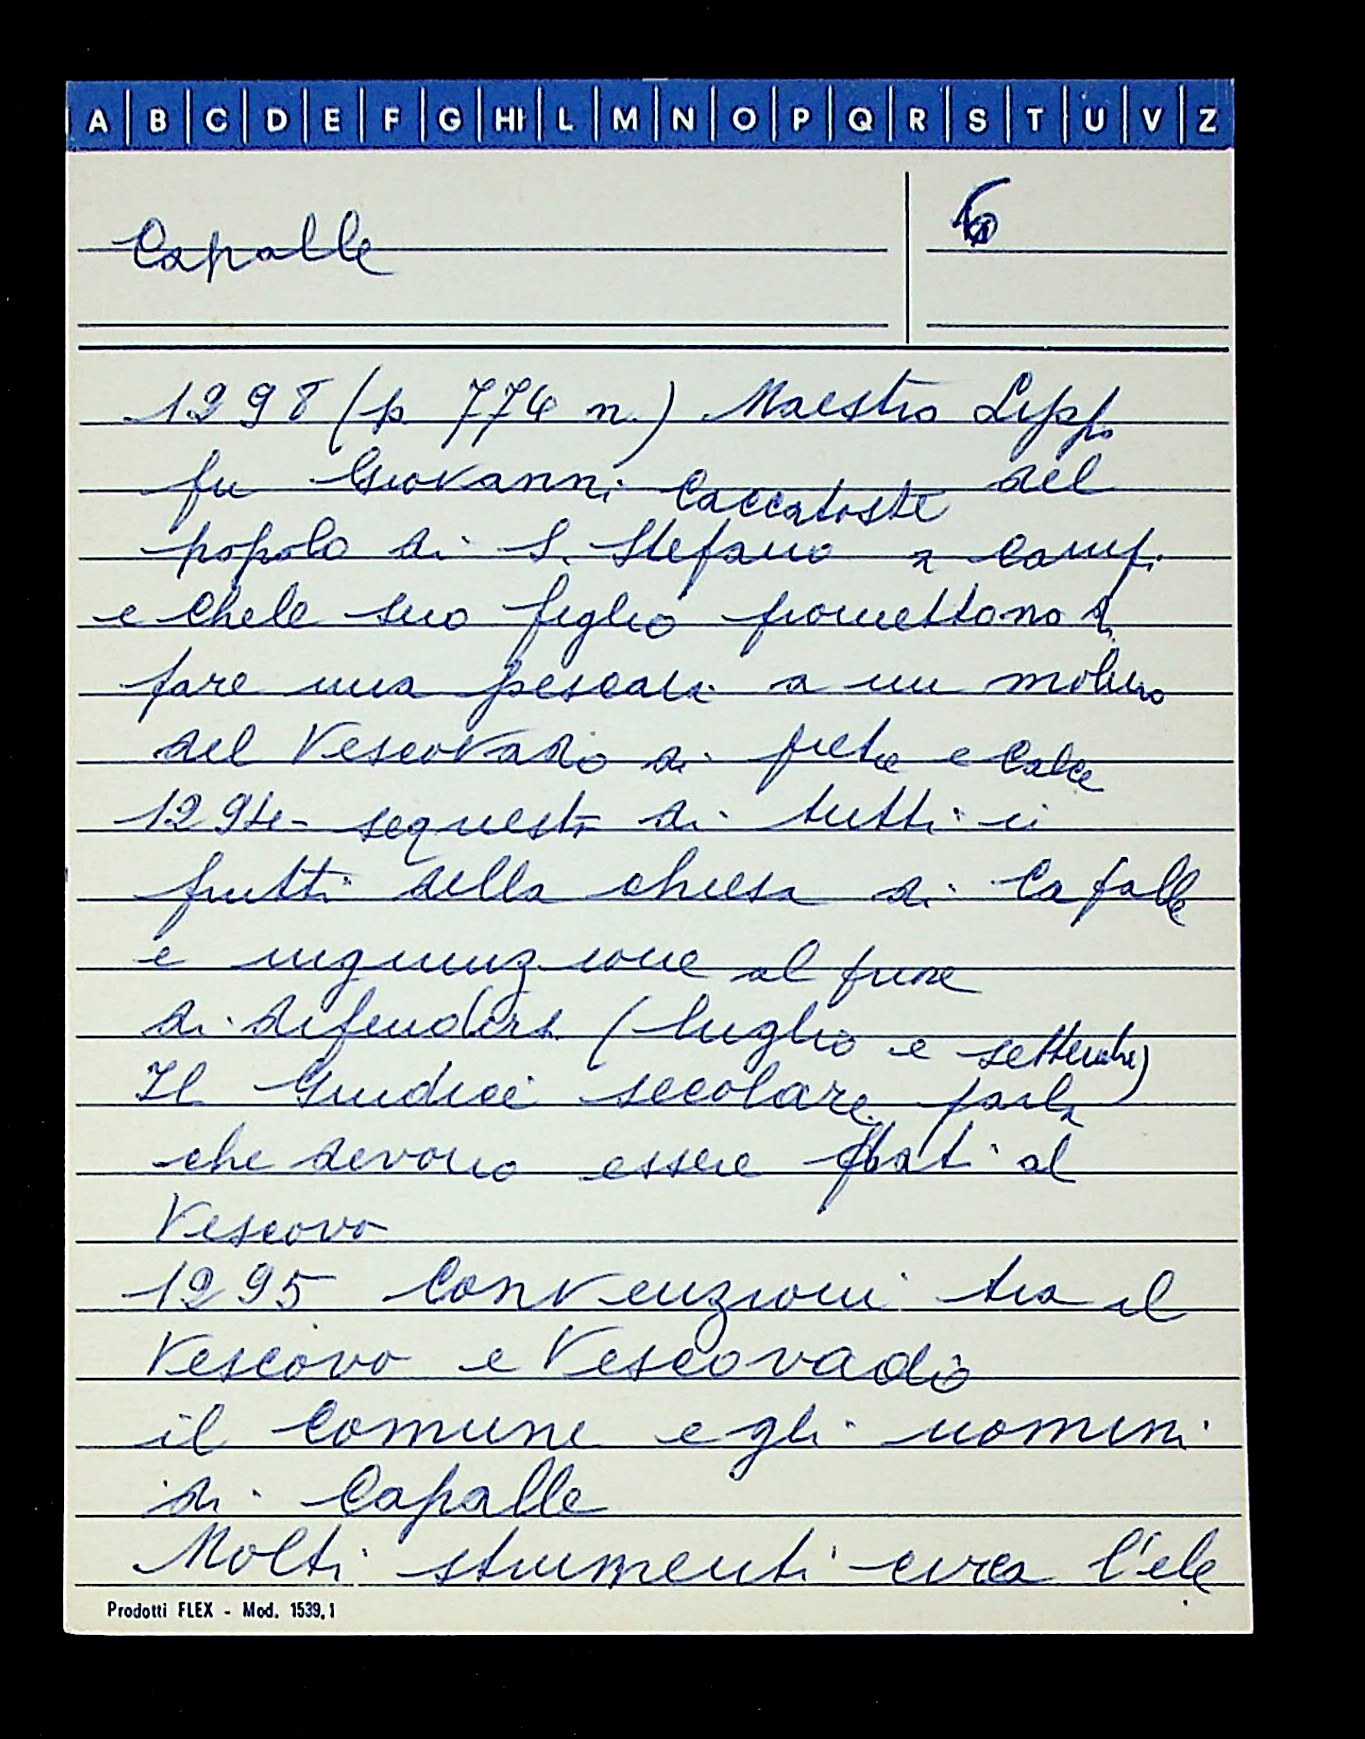 A B C D E F G HI L M N O P Q R S T U V Z
Capalle
6
1298 (p. 774 n.) Maestro Lippo
fu Giovanni Caccatoste del
popolo di S. Stefano a Campi
e Chele suo figlio promettono di
fare una pescaia a un molino
del Vescovado di pietre e calce
1294 - sequestro di tutti i
frutti della chiesa di Capalle
e ingiunzione al priore
di difendersi (luglio e settembre)
Il Giudice secolare parla
che devono essere dati al
Vescovo
1295 Convenzioni tra il
Vescovo e Vescovado
il Comune e gli uomini
di Capalle
Molti strumenti circa l'ele
Prodotti FLEX - Mod. 1539.1